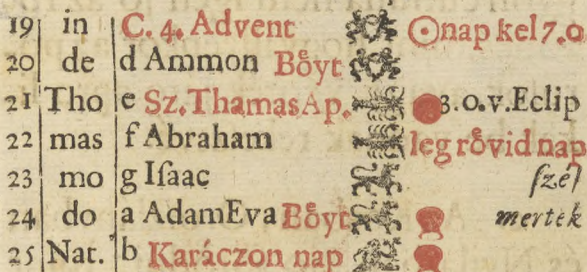 19 in C. 4. Advent ☉nap kel 7.0
20 de d Ammon Bőyt
21 Tho e Sz.Thamas Ap. 3.o.v.Eclip
22 mas f Abraham leg rővid nap
23 mo g Iſaac ſzél
24 do a AdamEva Bőyt mertek
25 Nat. b Karáczon nap